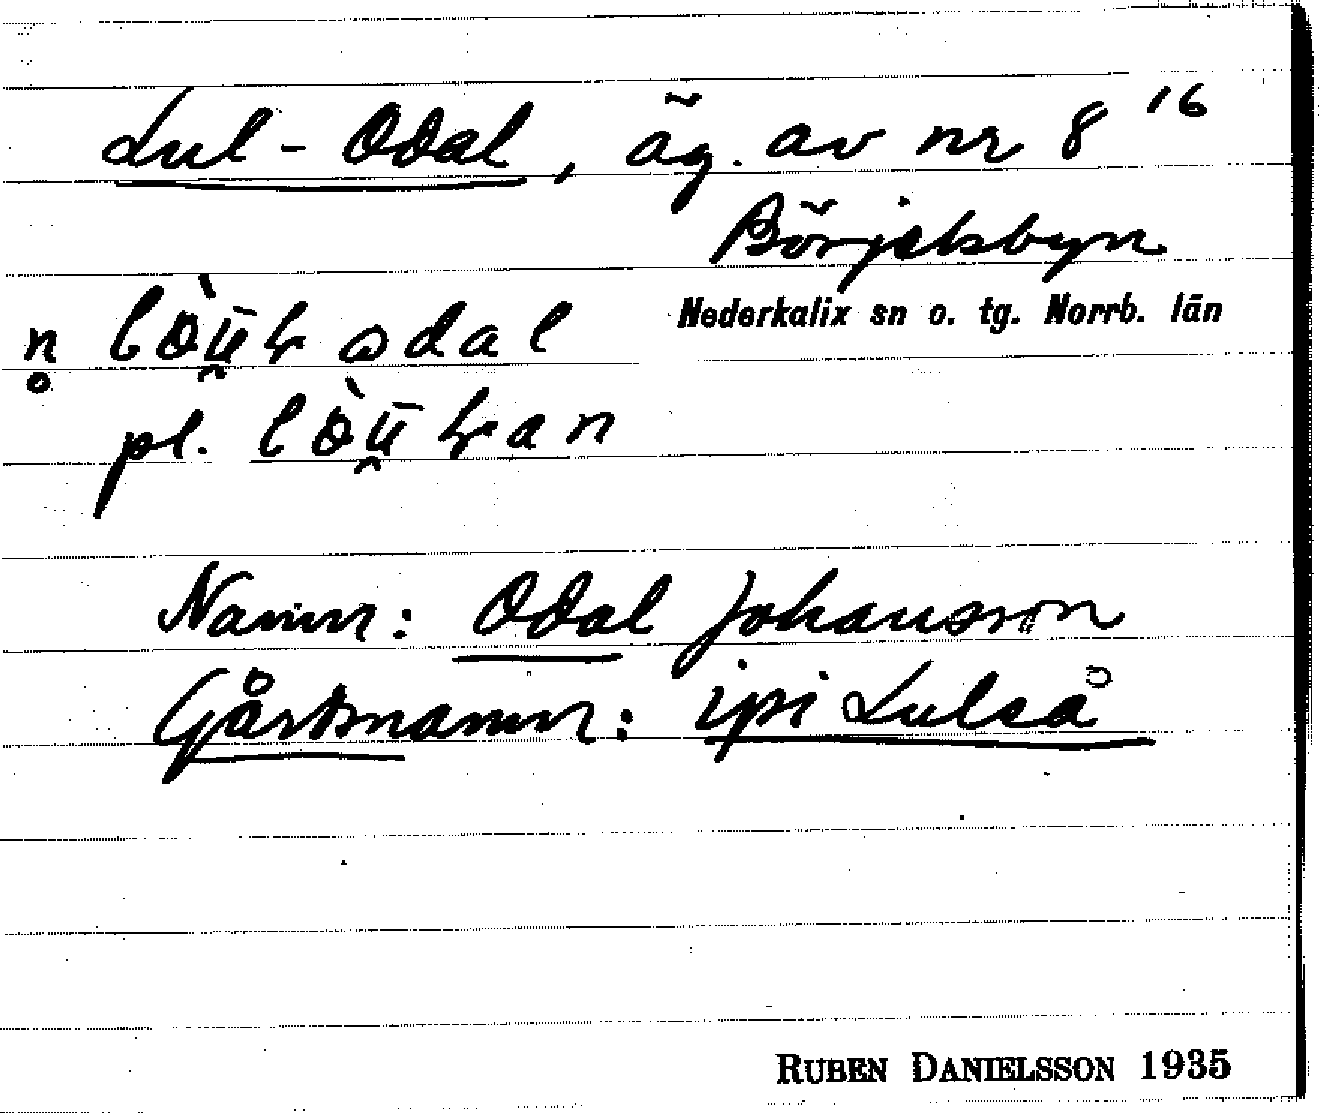 Lul-Odal, äg. av nr 8 16
Börjelsbyn
Nederkalix sn o. tg. Norrb. län
pl.
Namn: Odal Johansson
Gårdsnamn: ipi Lulså
RUBEN DANIELSSON 1935